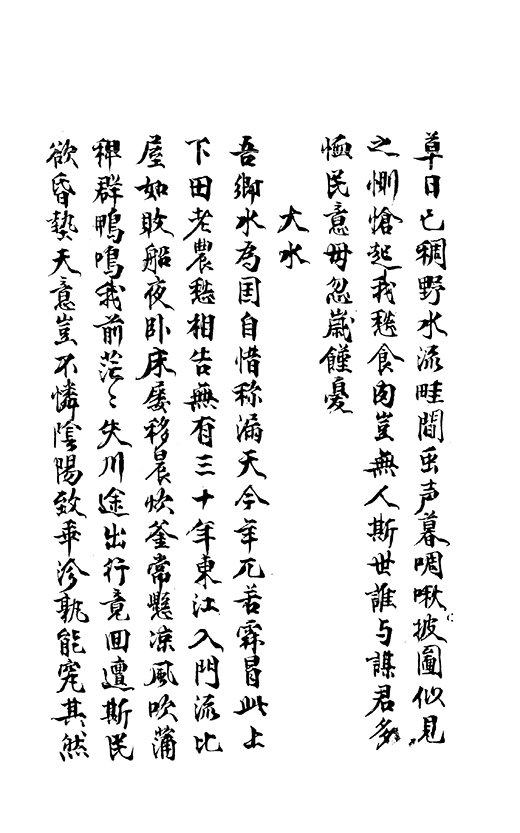 草日已稠野水流畦間虫声暮啁啾披圖似見
之惻愴起我愁食肉豈無人斯世誰与謀君多
恤民意毋忽歲饉憂
大水
吾鄉水為国自惜称漏天今年兀苦霖冒此上
下田老農愁相告無有三十年東江入門流比
屋如敗船夜卧床屡移晨炊釜常懸凉風吹蒲
稗群鴨鳴我前茫〻失川途出行竟回邅斯民
欲昏墊天意豈不憐陰陽致乖沴孰能究其然